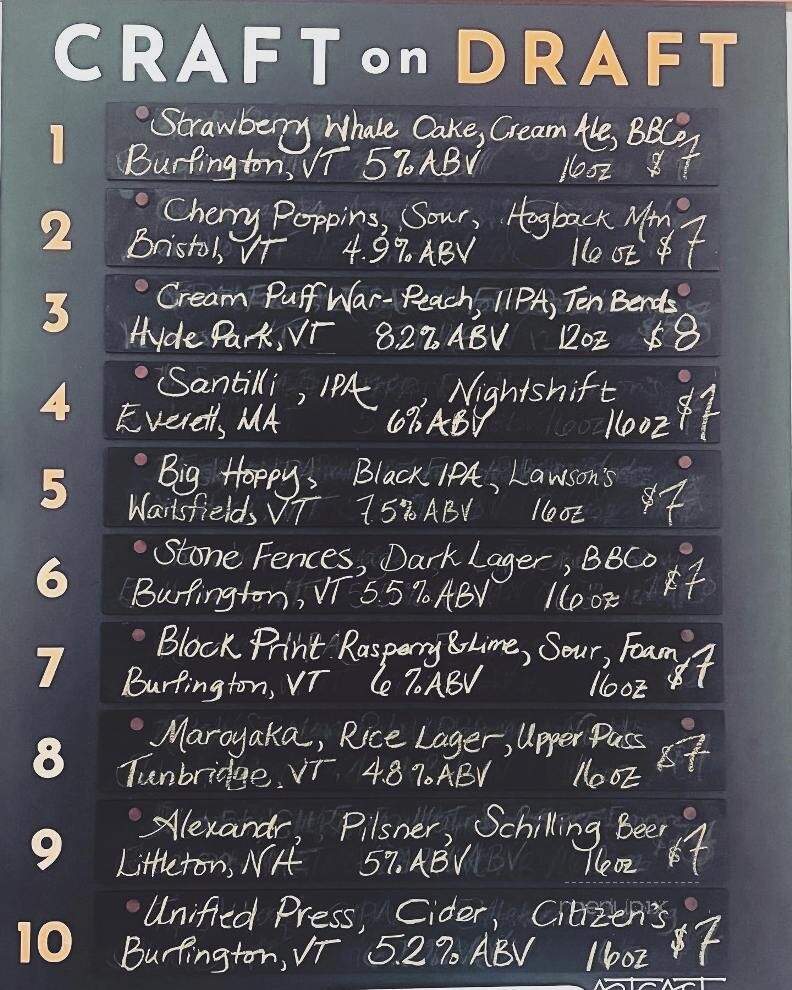 CRAFT on DRAFT
1
Strawberry Whale Cake, Cream Ale, BBCo
Burlington, VT 5% ABV 16oz $7
2
Cherry Poppins, Sour, Hogback Mtn
Bristol, VT 4.9% ABV 16 oz $7
3
Cream Puff War-Peach, IIPA, Ten Bends
Hyde Park, VT 8.2% ABV 12oz $8
4
Santilli, IPA, Nightshift
Everett, MA 6% ABV 16oz $7
5
Big Hoppy, Black IPA, Lawson's
Waitsfield, VT 7.5% ABV 16oz $7
6
Stone Fences, Dark Lager, BBCo
Burlington, VT 5.5% ABV 16 oz $7
7
Block Print Rasperry & Lime, Sour, Foam
Burlington, VT 6% ABV 16oz $7
8
Maroyaka, Rice Lager, Upper Pass
Tunbridge, VT 4.8% ABV 16oz $7
9
Alexandr, Pilsner, Schilling Beer
Littleton, NH 5% ABV 16oz $7
10
Unified Press, Cider, Citizen's
Burlington, VT 5.2% ABV 16oz $7
menupix